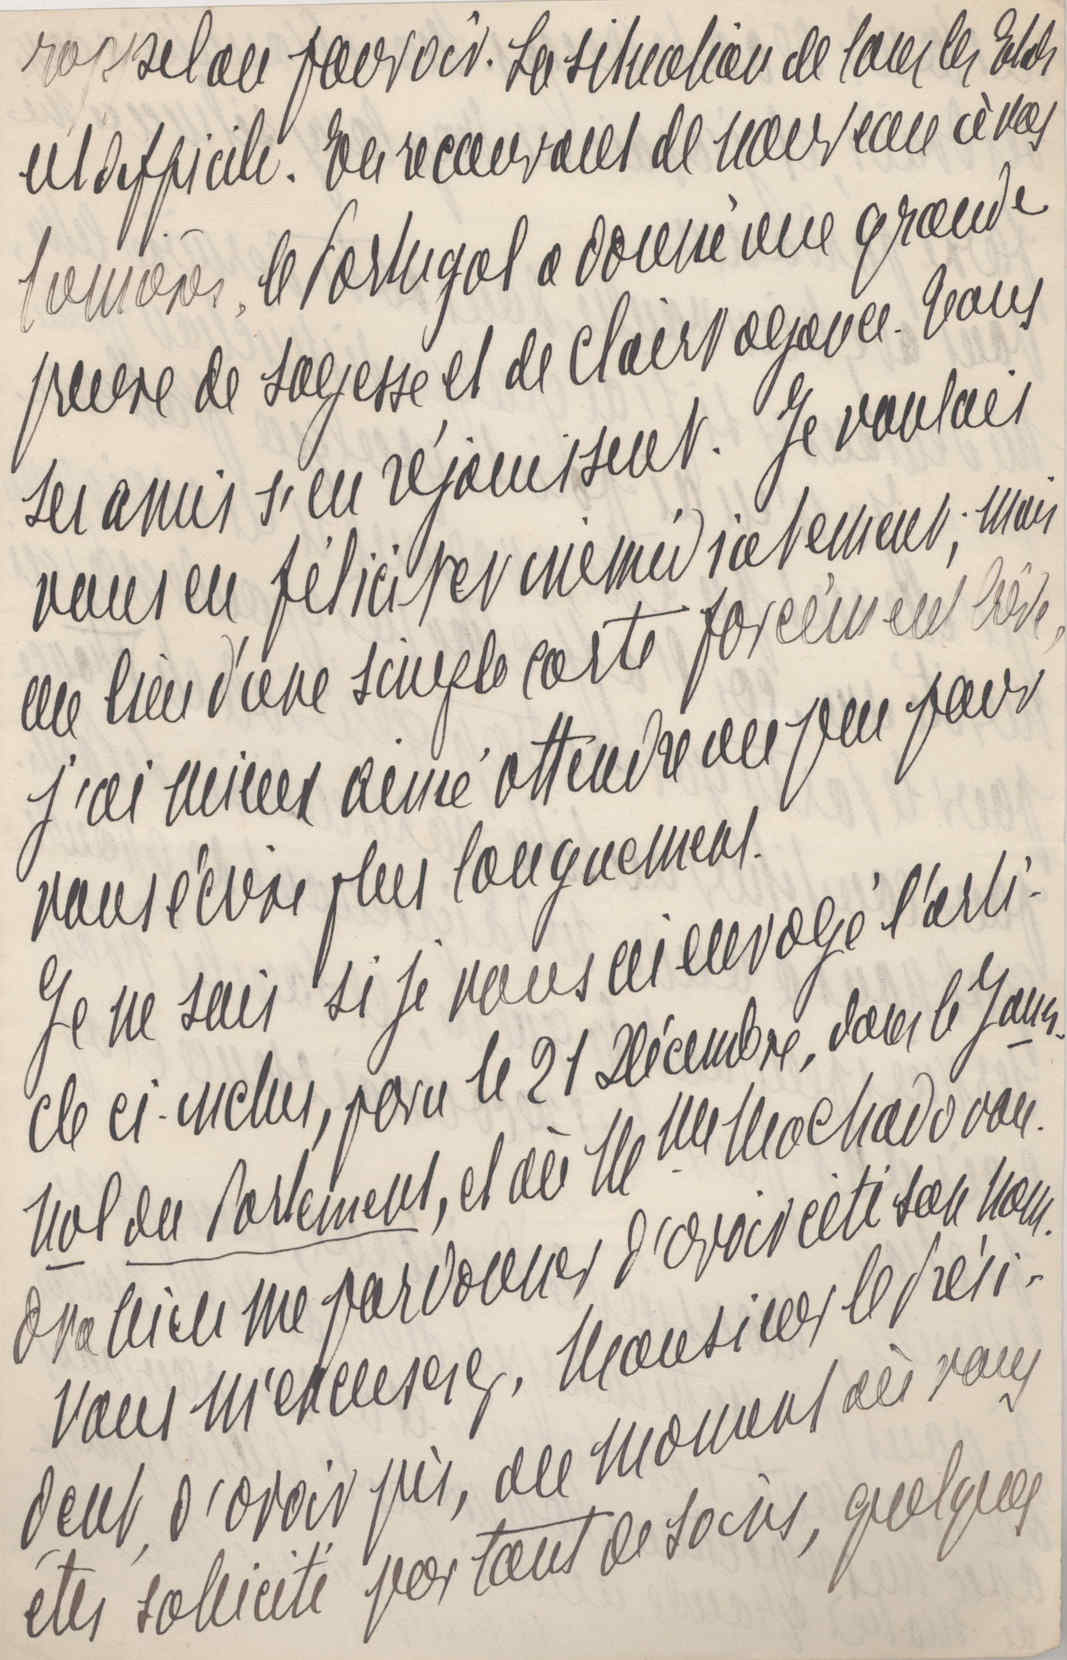 rappel au pouvoir. La situation de tous les Etats
est difficile. En recourant de nouveau à vos
lumières, le Portugal a donné une grande
preuve de sagesse et de clairvoyance. Tous
ses amis s'en réjouissent. Je voulais
vous en féliciter immédiatement; mais
au lieu d'une simple carte forcément brève,
j'ai mieux aimé attendre un peu pour
vous écrire plus longuement.
Je ne sais si je vous ai envoyé l'arti-
cle ci-inclus, paru le 21 Décembre, dans le Jour-
nal du Parlement, et où Mme Machado vou-
dra bien me pardonner d'avoir cité son nom.
Vous m'excuserez, Monsieur le Prési-
dent, d'avoir pris, au moment où vous
êtes sollicité par tant de soins, quelques